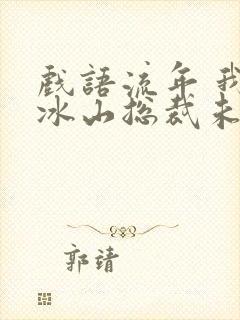 戲語流年我
冰山总裁未
郭靖